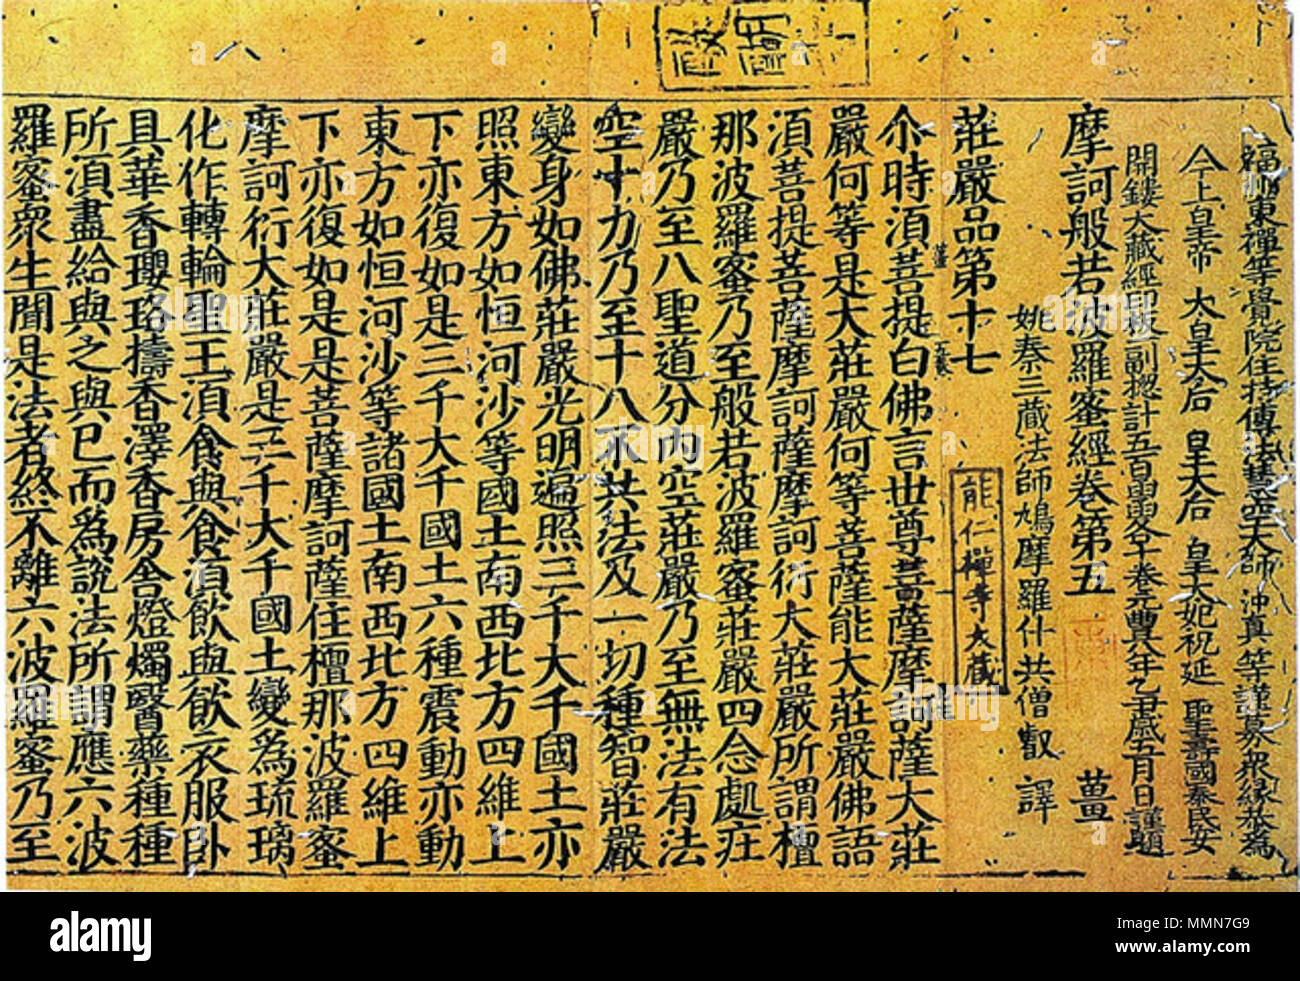 福州東禪等覺院住持傳法慧空大師沖真等謹募衆緣恭爲
今上皇帝 太皇太后 皇太后 皇太妃祝延 聖壽國泰民安
開鏤大藏經印板一副揔計五百函各十卷元豊八年乙丑歲五月日謹題
摩訶般若波羅蜜經卷第五 薑
姚秦三藏法師鳩摩羅什共僧叡譯
莊嚴品第十七
能仁禪寺大藏
尒時湏菩提白佛言世尊菩薩摩訶薩大莊
嚴何等是大莊嚴何等菩薩能大莊嚴佛語
湏菩提菩薩摩訶薩摩訶衍大莊嚴所謂檀
那波羅蜜乃至般若波羅蜜莊嚴四念處莊
嚴乃至八聖道分内空莊嚴乃至無法有法
空十力乃至十八不共法及一切種智莊嚴
變身如佛莊嚴光明遍照三千大千國土亦
照東方如恒河沙等國土南西北方四維上
下亦復如是三千大千國土六種震動亦動
東方如恒河沙等諸國土南西北方四維上
下亦復如是是菩薩摩訶薩住檀那波羅蜜
摩訶衍大莊嚴是三千大千國土變爲琉璃
化作轉輪聖王湏食與食湏飲與飲衣服卧
具華香瓔珞擣香澤香房舍燈燭醫藥種種
所湏盡給與之與已而爲說法所謂應六波
羅蜜衆生聞是法者終不離六波羅蜜乃至
alamy
MMN7G9
www.alamy.com